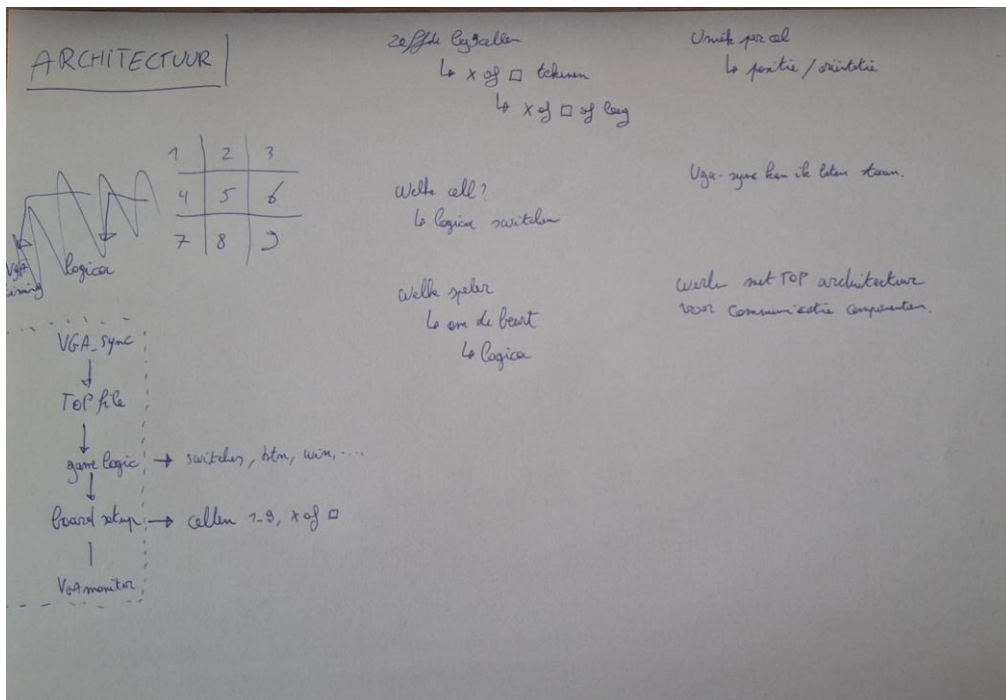 ARCHITECTUUR
1 2 3
4 5 6
7 8 9
VGA logica
timing
VGA_sync
TOP file
game logic → switches, btn, win, ....
board setup → cellen 1-9, x of □
VGA monitor
Zelfde cellen
↳ x of □ tekenen
↳ x of □ of leeg
Welke cell?
↳ logica switches
Welke speler
↳ om de beurt
↳ logica
Uniek per cel
↳ positie / oriëntatie
Vga-sync kan ik laten staan.
werk met TOP architectuur
voor communicatie componenten.